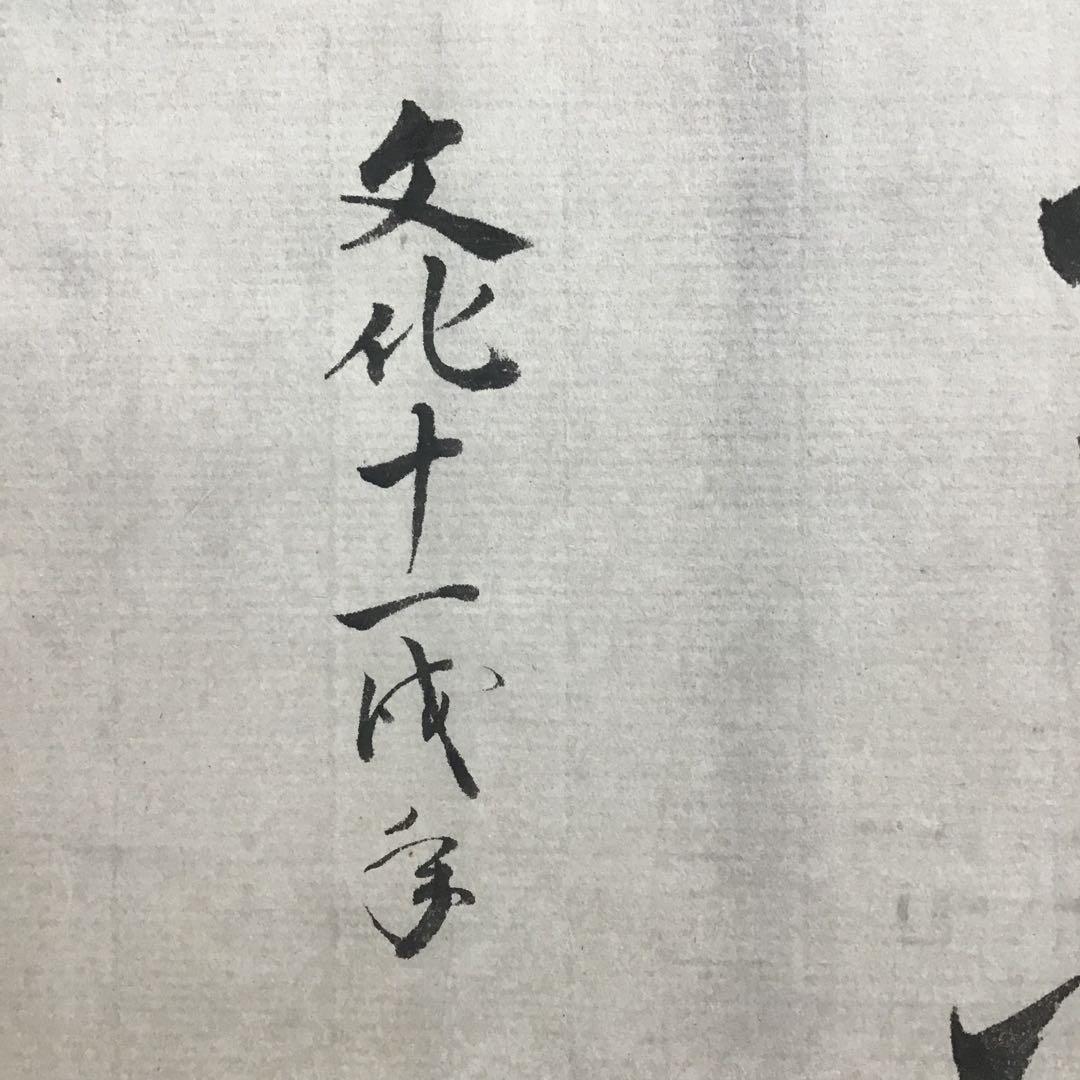 文化十一戌年